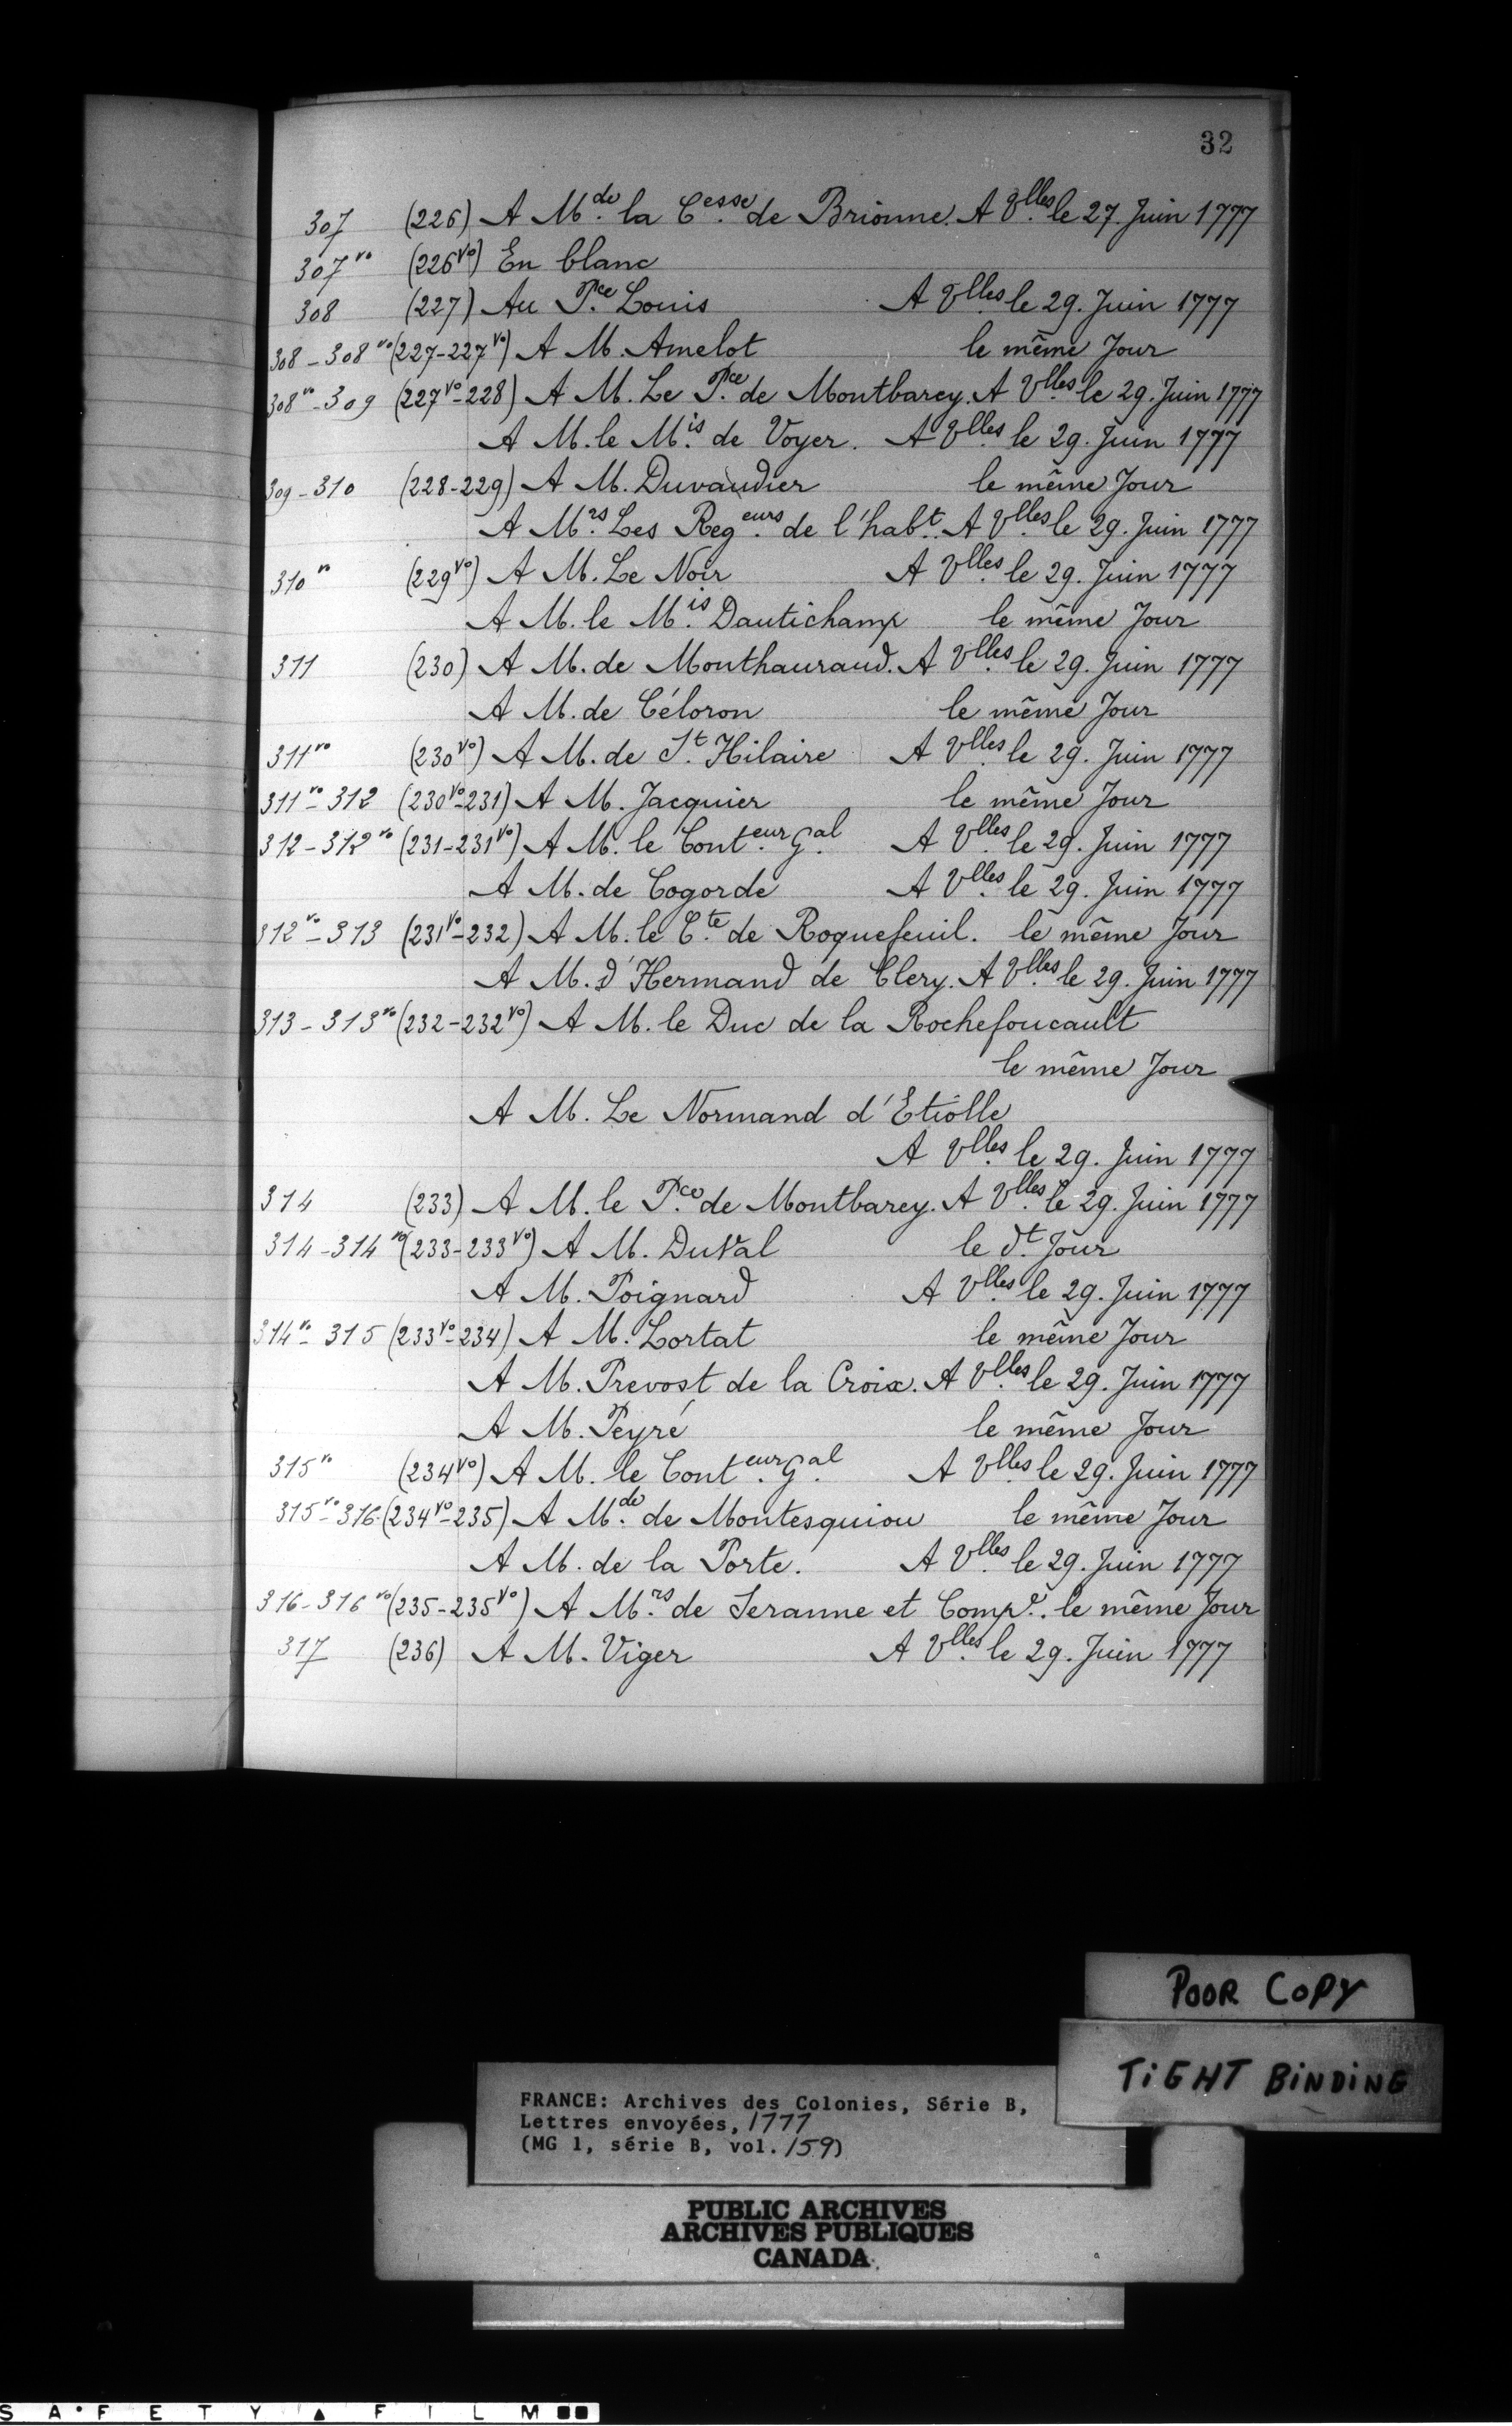 32
307 (226) A M.de la C.esse de Brionne. A V.lles le 27. Juin 1777
307 vo (226vo) En blanc
308 (227) Au P.ce Louis A V.lles le 29. Juin 1777
308-308 vo (227-227vo) A M. Amelot le même Jour
308 vo-309 (227vo-228) A M. Le P.ce de Montbarey. A V.lles le 29. Juin 1777
A M. le M.is de Voyer. A V.lles le 29. Juin 1777
309-310 (228-229) A M. Duvaudier le même Jour
A M.rs Les Reg.eurs de l'hab.t A V.lles le 29. Juin 1777
310 vo (229vo) A M. Le Noir A V.lles le 29. Juin 1777
A M. le M.is Dautichamp le même Jour
311 (230) A M. de Monthauraud. A V.lles le 29. Juin 1777
A M. de Céloron le même Jour
311 vo (230vo) A M. de S.t Hilaire A V.lles le 29. Juin 1777
311 vo-312 (230vo-231) A M. Jacquier le même Jour
312-312 vo (231-231vo) A M. le Cont.eur G.al A V.lles le 29. Juin 1777
A M. de Cogorde A V.lles le 29. Juin 1777
312 vo-313 (231vo-232) A M. le C.te de Roquefeuil. le même Jour
A M. d'Hermand de Clery. A V.lles le 29. Juin 1777
313-313 vo (232-232vo) A M. le Duc de la Rochefoucault
le même Jour
A M. Le Normand d'Etiolle
A V.lles le 29. Juin 1777
314 (233) A M. le P.ce de Montbarey. A V.lles le 29. Juin 1777
314-314 vo (233-233vo) A M. DuVal le d.t Jour
A M. Poignard A V.lles le 29. Juin 1777
314 vo-315 (233vo-234) A M. Lortat le même Jour
A M. Prevost de la Croix. A V.lles le 29. Juin 1777
A M. Peyré le même Jour
315 vo (234vo) A M. le Cont.eur G.al A V.lles le 29. Juin 1777
315 vo-316 (234vo-235) A M.de de Montesquiou le même Jour
A M. de la Porte. A V.lles le 29. Juin 1777
316-316 vo (235-235vo) A M.rs de Seranne et Comp.e. le même Jour
317 (236) A M. Viger A V.lles le 29. Juin 1777
POOR COPY
TIGHT BINDING
FRANCE: Archives des Colonies, Série B,
Lettres envoyées, 1777
(MG 1, série B, vol. 159)
PUBLIC ARCHIVES
ARCHIVES PUBLIQUES
CANADA
SAFETY FILM